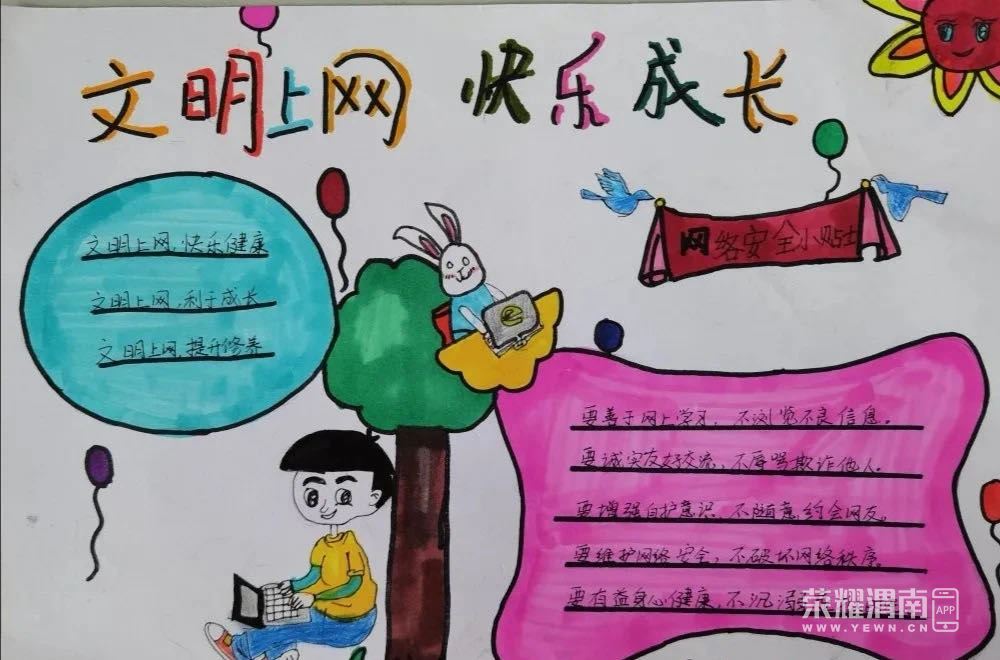 文明上网 快乐成长
网络安全小贴士
文明上网,快乐健康
文明上网,利于成长
文明上网,提升修养
要善于网上学习,不浏览不良信息。
要诚实友好交流,不辱骂欺诈他人。
要增强自护意识,不随意约会网友。
要维护网络安全,不破坏网络秩序。
要有益身心健康,不沉溺
荣耀渭南 APP
WWW.YEWN.CN